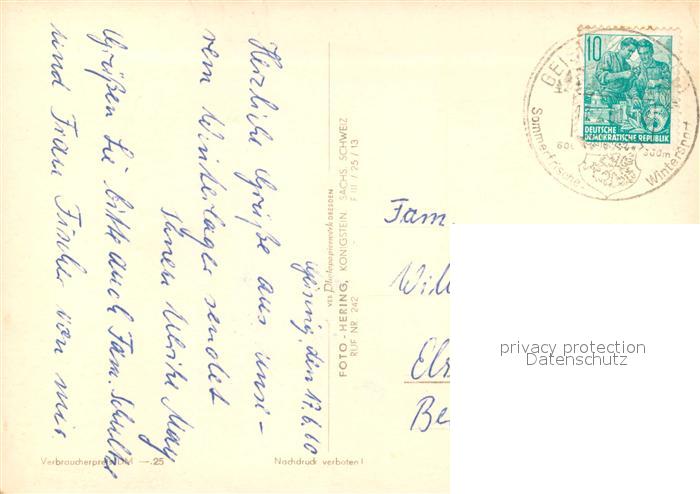 Geising, den 17.6.60
Herzliche Grüße aus unse-
rem Winterlager sendet
Ihnen Ulrike May
Grüßen Sie bitte auch Fam. Schulke
und Frau Fischer von mir.
Verbraucherpreis DM —.25
Nachdruck verboten!
VEB Photopapierwerk DRESDEN
FOTO-HERING, KÖNIGSTEIN, SÄCHS. SCHWEIZ
RUF NR. 242 F III / 25 / 13
10
DEUTSCHE
DEMOKRATISCHE REPUBLIK
5
GEISI
Sommerfrische
Wintersport
600
Fam.
Wil
Be
privacy protection
Datenschutz